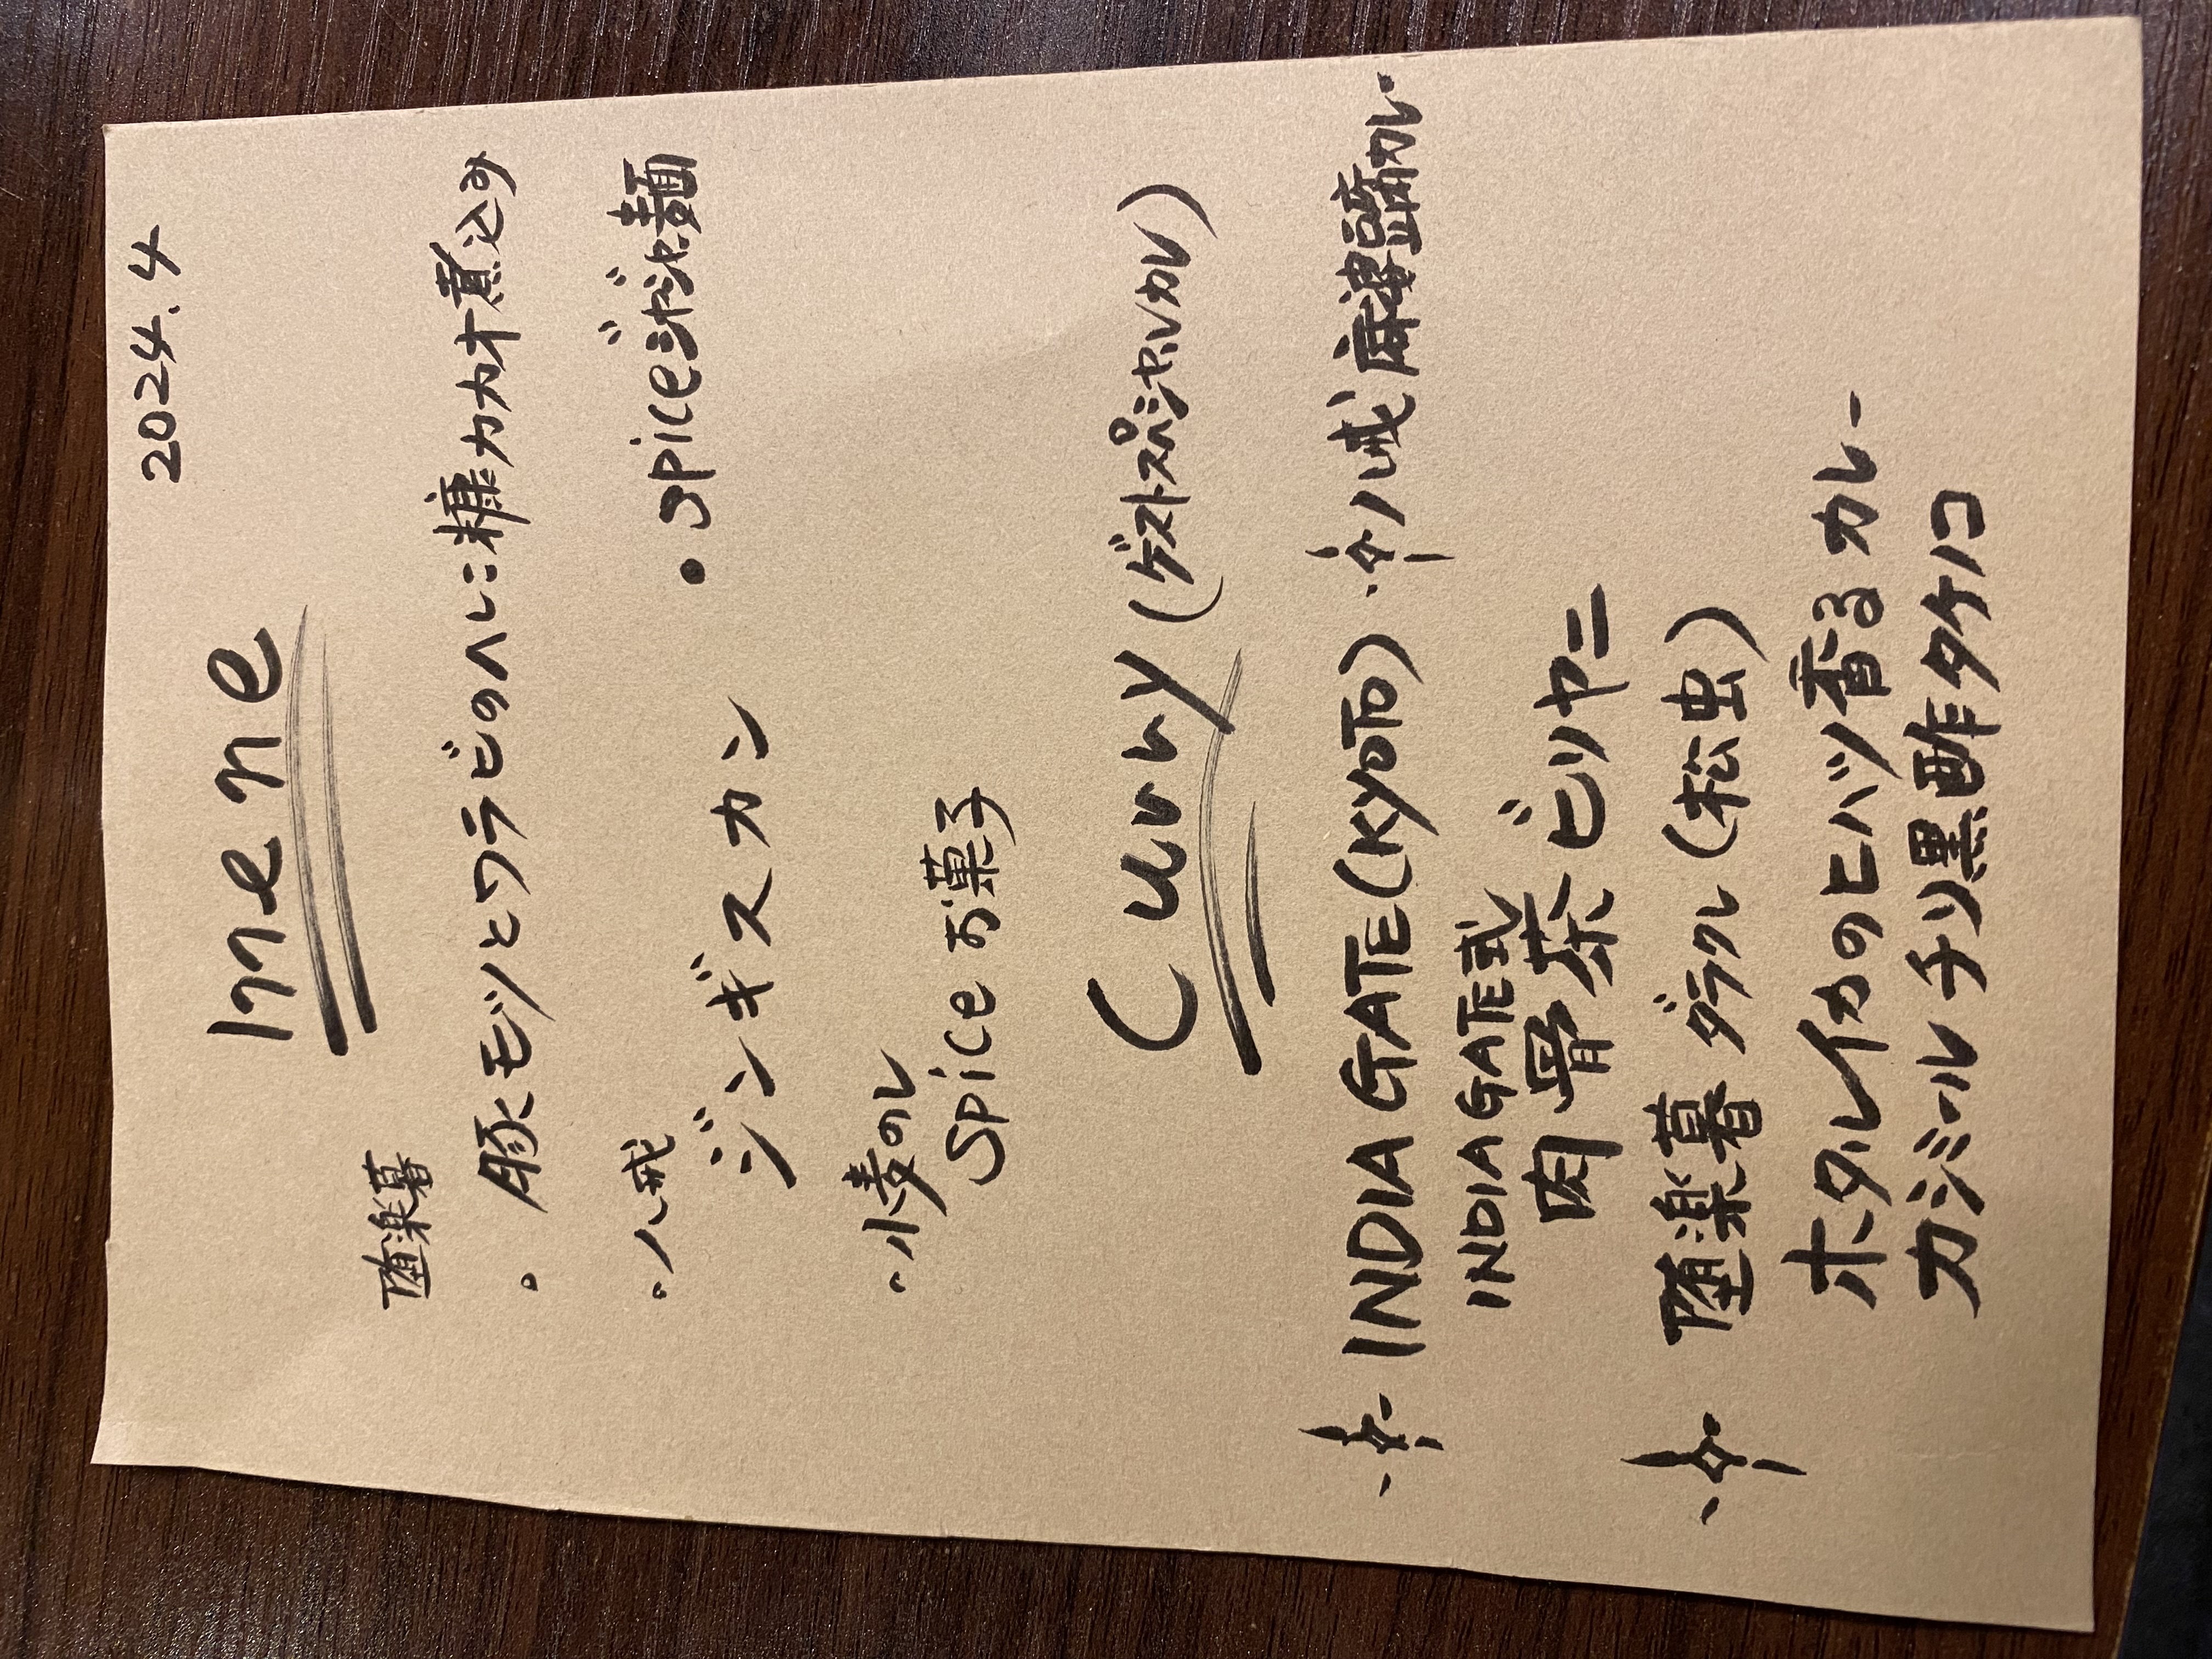 2024.4
mene
堕楽暮
・豚モツとワラビのへしこ糠カカオ煮込み
・八戒
ジンギスカン
・spiceジャジャ麺
・小麦のレ
Spice お菓子
Curry (ゲストスペシャルカレ)
INDIA GATE (KYOTO)
INDIA GATE式
肉骨茶ビリヤニ
八戒 麻婆豆腐カレー
堕楽暮 ダラクレ (松虫)
ホタルイカのヒハツ香るカレー
カジミール チリ黒酢タケノコ